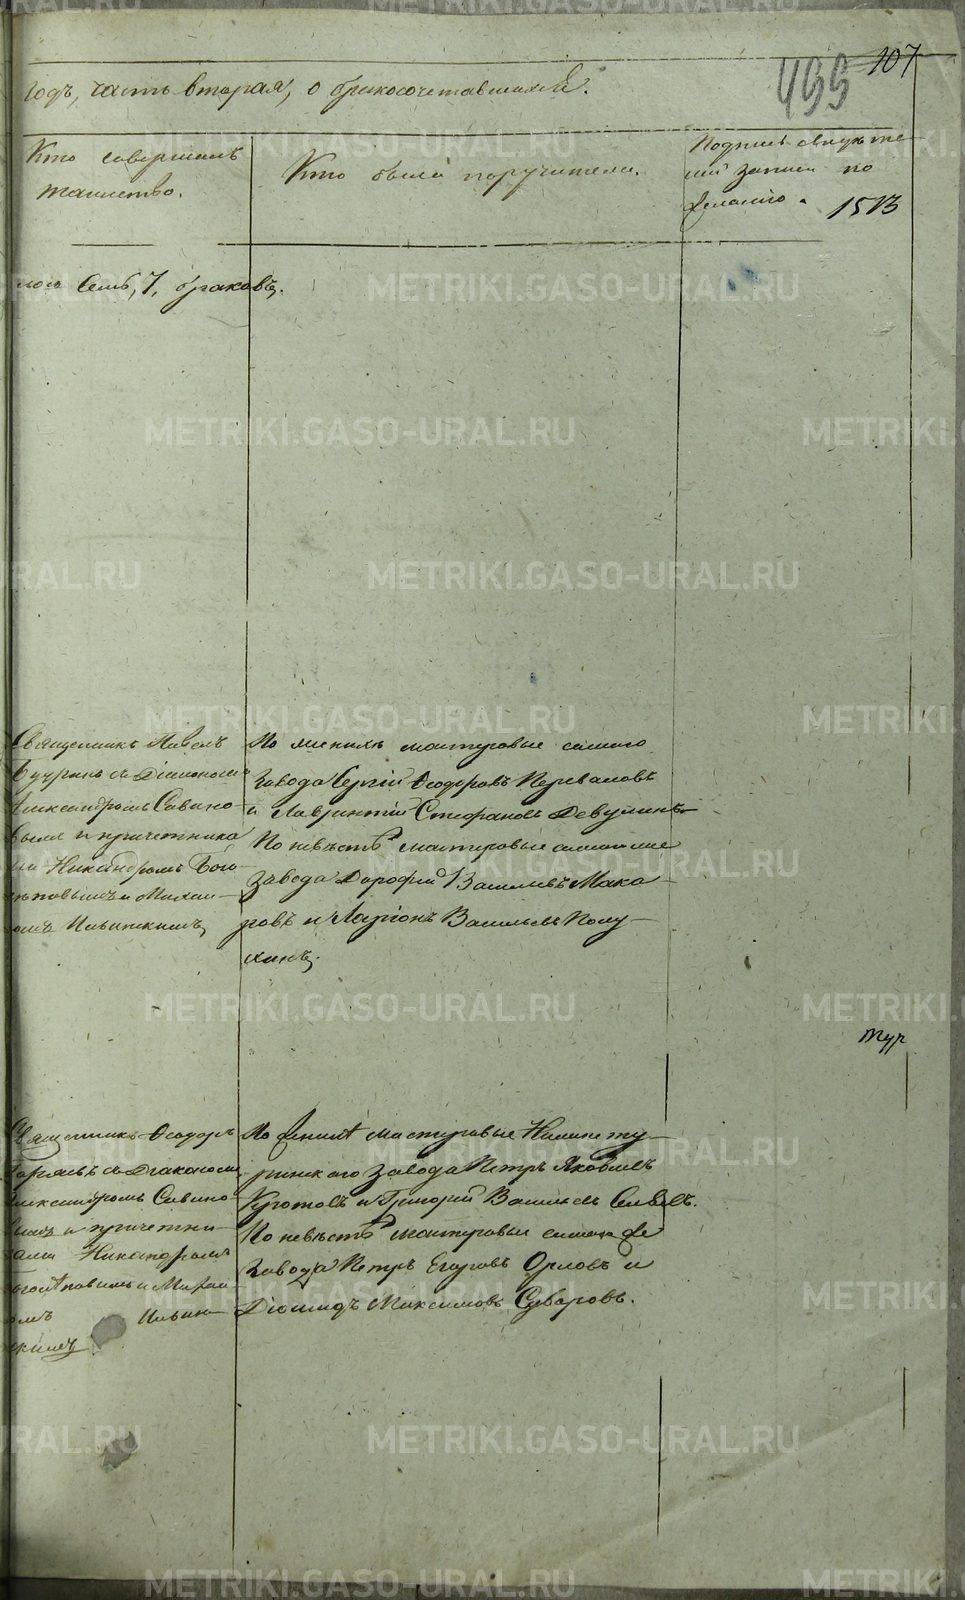 499 107
Годъ, часть вторая, о бракосочетавшихся.
Кто совершалъ
таинство.
Кто были поручители.
Подпись свидѣте-
лей записи по
желанію. 1513
Семь, 7, браковъ.
Священникъ Павелъ
съ Діакономъ
Александромъ Савино-
вымъ и причетника
ми Никандромъ Бого
лѣповымъ и Михаи-
ломъ Ильинскимъ
По женихѣ мастеровые сего
завода Сергій Ѳеодоровъ Переваловъ
и Лаврентій Стефановъ Девушинъ
По невѣстѣ мастеровые
завода Дорофей Васильевъ Мака
ровъ и Ларіонъ Васильевъ Полу-
хинъ.
Тур
Священникъ Ѳеодоръ
съ Діакономъ
Александромъ Савино
вымъ и причетни-
ками Никандромъ
Боголѣповымъ и Михаи-
ломъ Ильин-
скимъ
По женихѣ мастеровые Нижнету-
ринскаго завода Петръ Яковлевъ
Кротовъ и Григорій Васильевъ
По невѣстѣ мастеровые
завода Петръ Егоровъ Орловъ и
Діомидъ Максимовъ Суворовъ.
METRIKI.GASO-URAL.RU